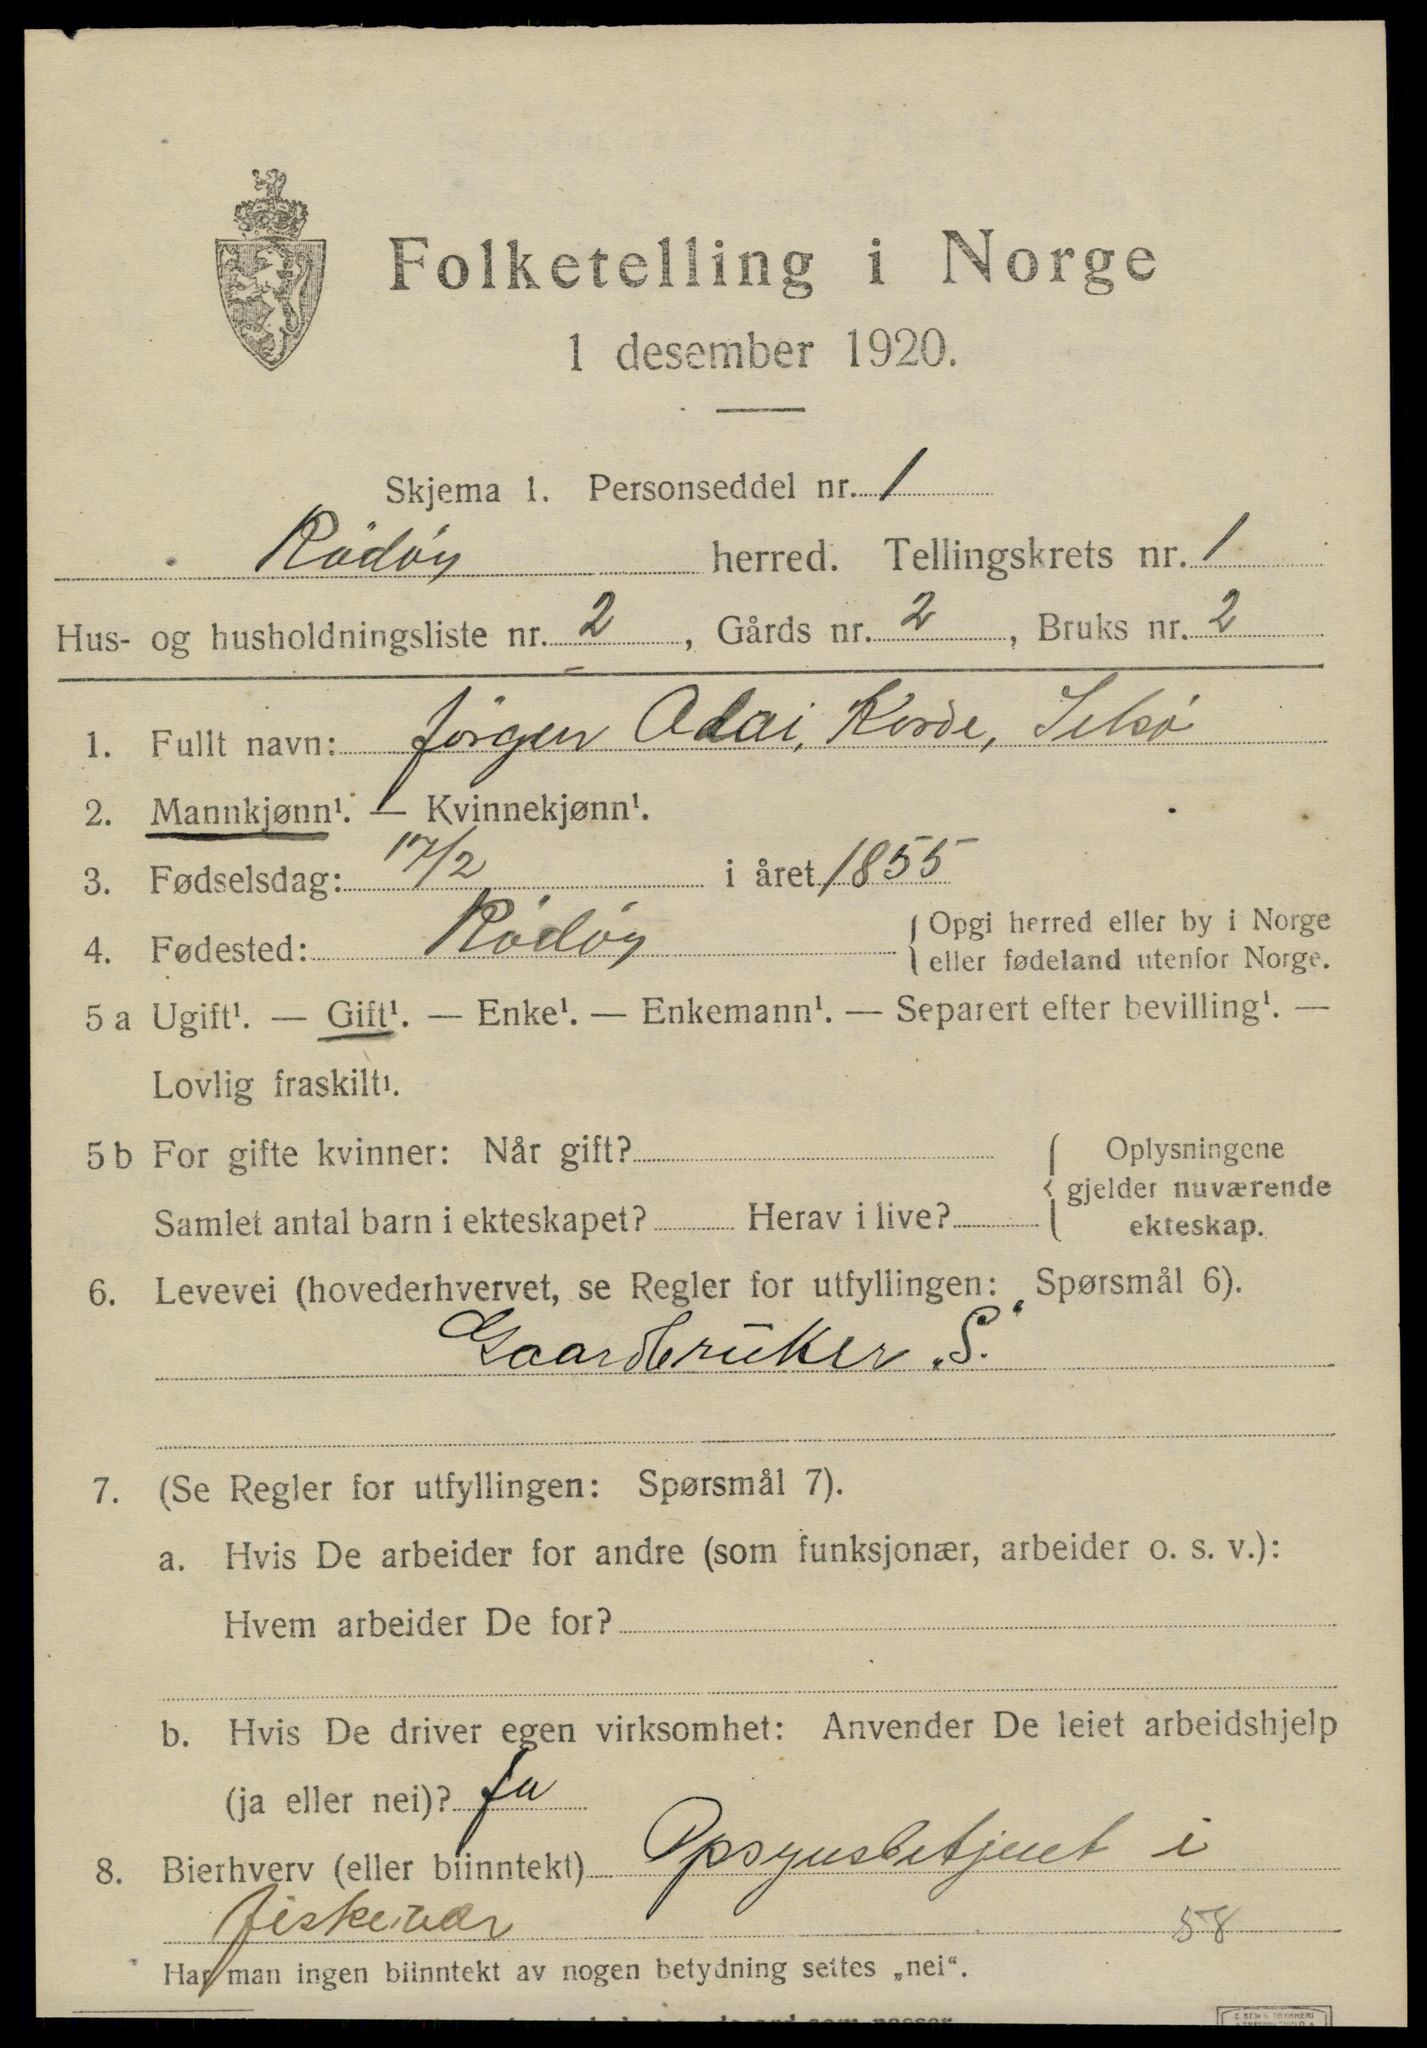 Folketelling i Norge
1 desember 1920.
Skjema 1. Personseddel nr. 1
Rödöy herred. Tellingskrets nr. 1
Hus- og husholdningsliste nr. 2, Gårds nr. 2, Bruks nr. 2
1. Fullt navn: Jörgen Adai, Korde, Selsö
2. Mannkjønn¹. — Kvinnekjønn¹.
3. Fødselsdag: 17/2 i året 1855
4. Fødested: Rödöy { Opgi herred eller by i Norge
eller fødeland utenfor Norge.
5 a Ugift¹. — Gift¹. — Enke¹. — Enkemann¹. — Separert efter bevilling¹. —
Lovlig fraskilt¹.
5 b For gifte kvinner: Når gift?
Samlet antal barn i ekteskapet? Herav i live?
{ Oplysningene
gjelder nuværende
ekteskap.
6. Levevei (hovederhvervet, se Regler for utfyllingen: Spørsmål 6).
Gaardbrüker „S."
7. (Se Regler for utfyllingen: Spørsmål 7).
a. Hvis De arbeider for andre (som funksjonær, arbeider o. s. v.):
Hvem arbeider De for?
b. Hvis De driver egen virksomhet: Anvender De leiet arbeidshjelp
(ja eller nei)? Ja
8. Bierhverv (eller biinntekt) Opsynsbetjent i
fiskevær 58
Har man ingen biinntekt av nogen betydning settes „nei".